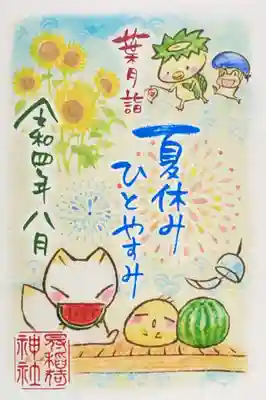 葉月詣
夏休み
ひとやすみ
令和四年八月
神社